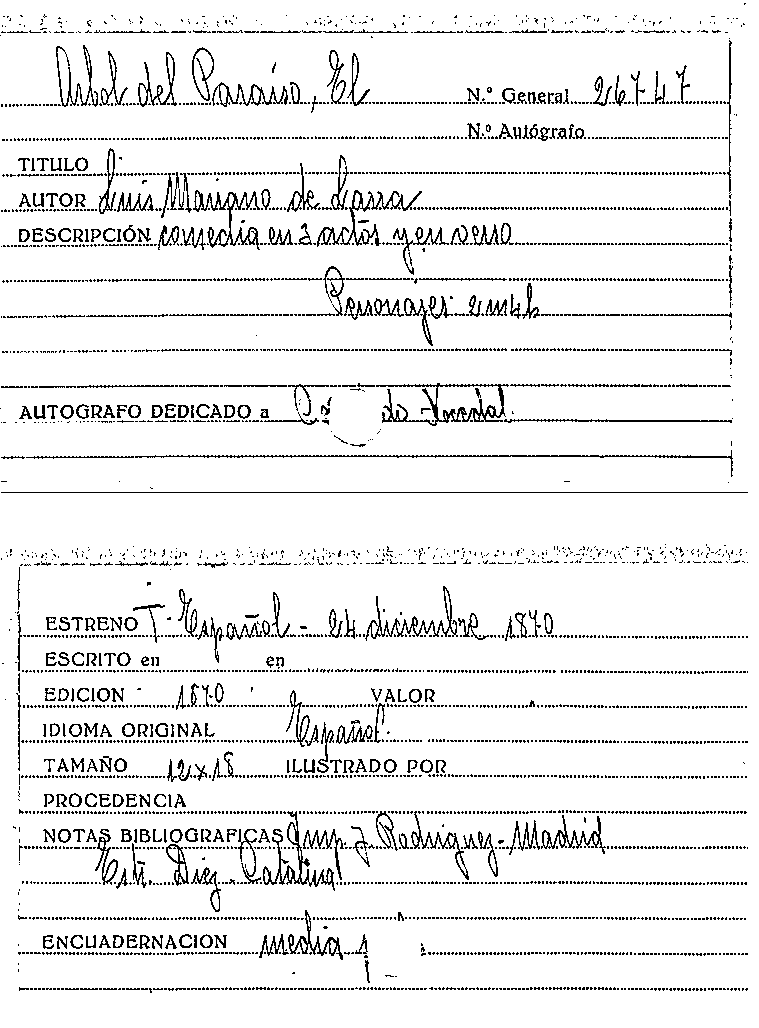 Arbol del Paraiso, El
N.º General 26747
N.º Autógrafo
TITULO
AUTOR Luis Mariano de Larra
DESCRIPCIÓN comedia en 3 actos y en verso
Personajes 2m4h
AUTOGRAFO DEDICADO a
ESTRENO T. Español - 24 diciembre 1870
ESCRITO en en
EDICION 1870 VALOR
IDIOMA ORIGINAL Español.
TAMAÑO 12x18 ILUSTRADO POR
PROCEDENCIA
NOTAS BIBLIOGRAFICAS Imp. J. Rodriguez - Madrid
Estr. Diez - Catalina
ENCUADERNACION media